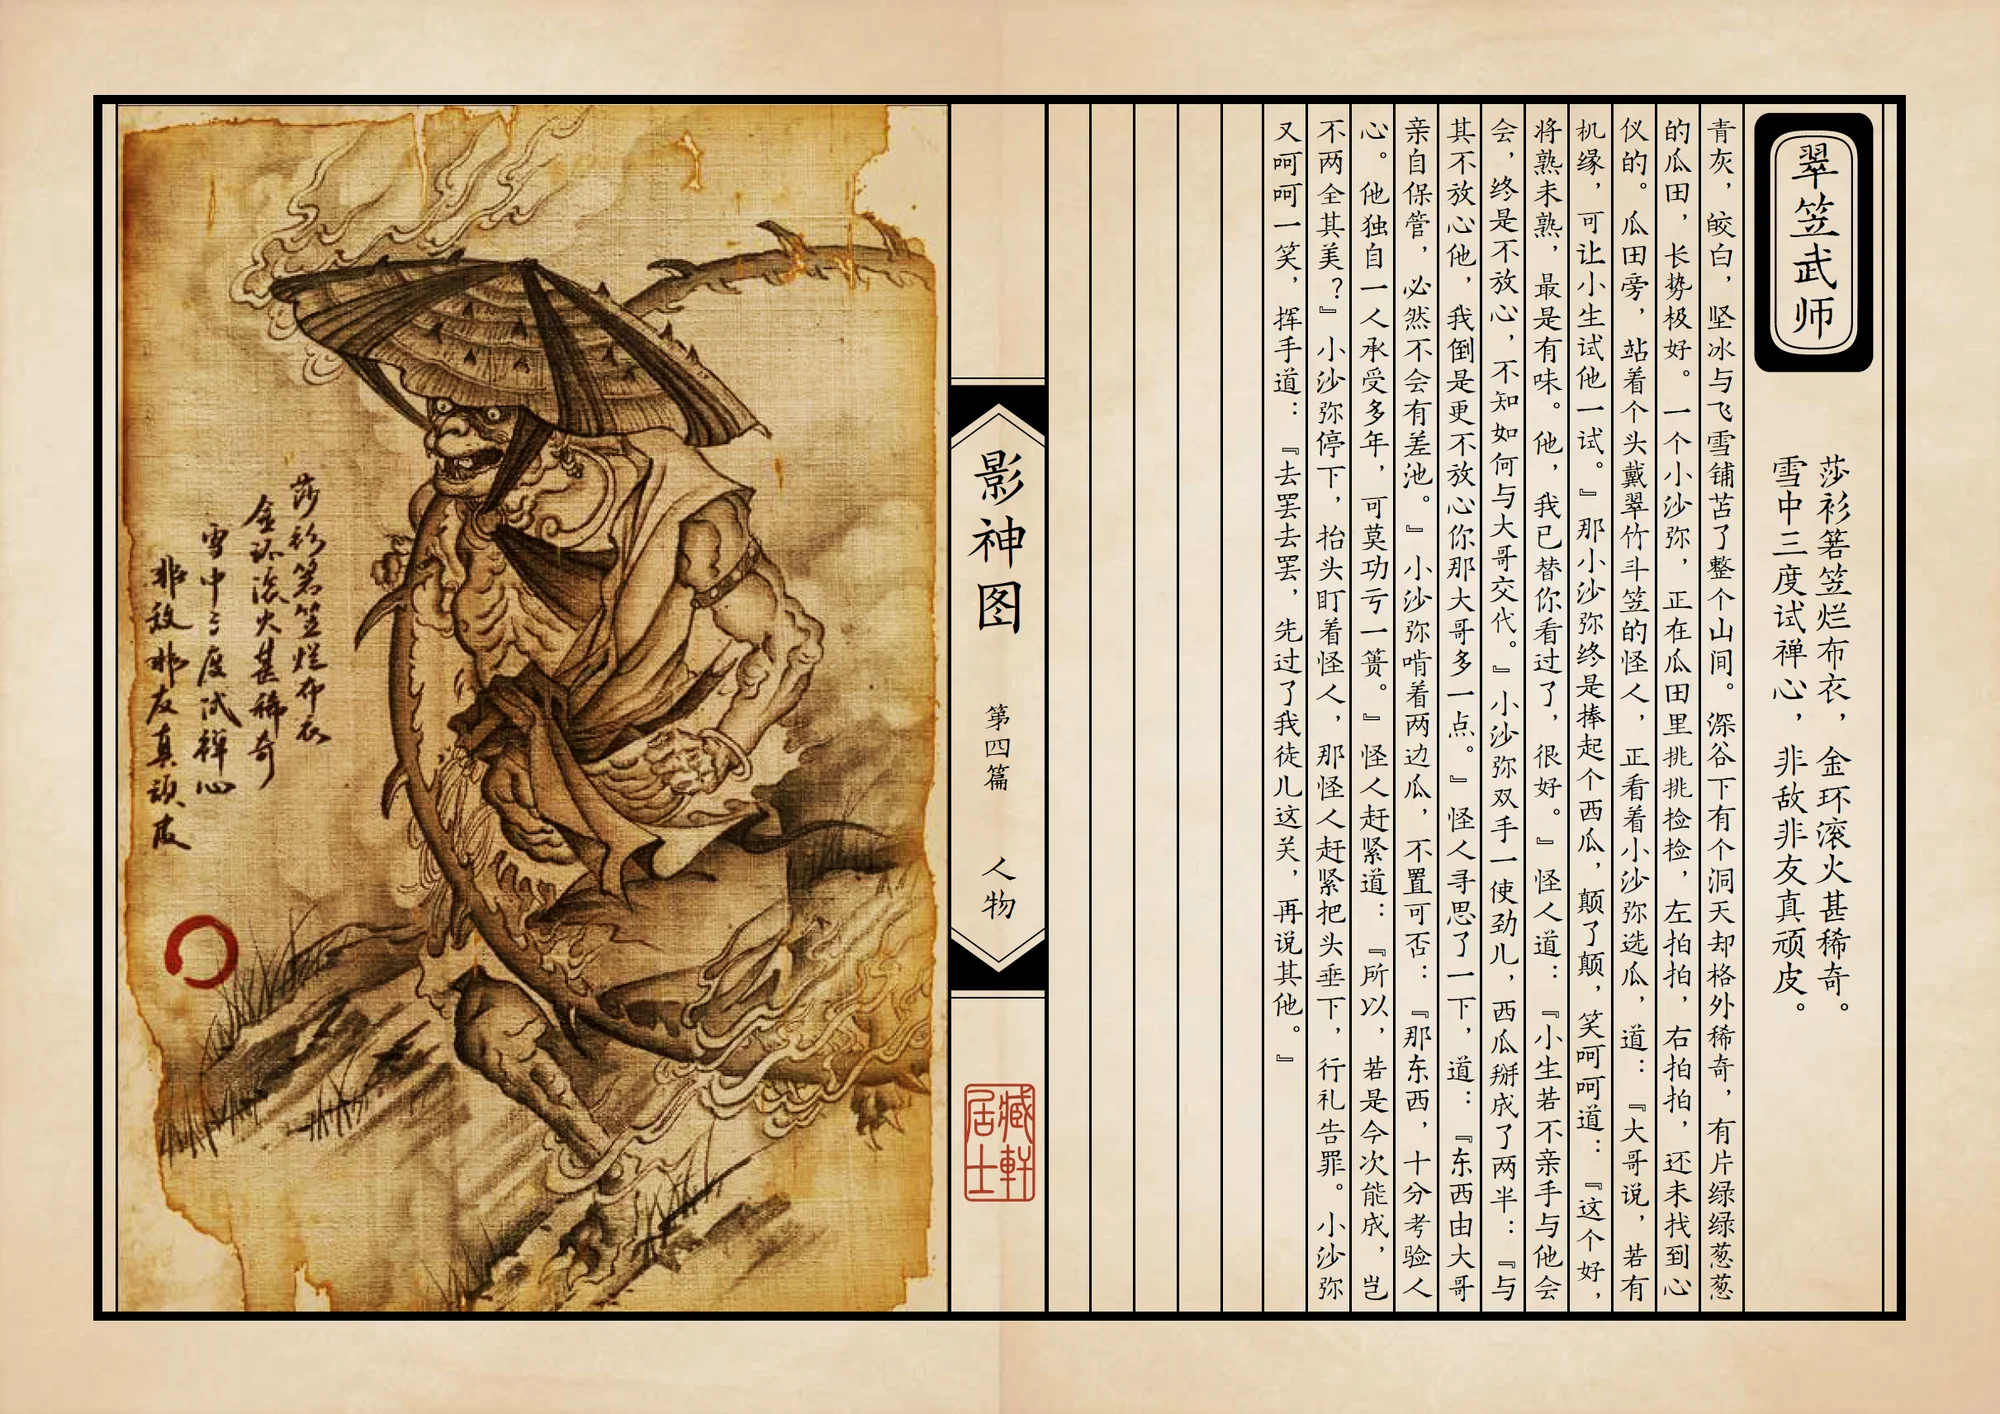 翠笠武师
莎衫箬笠烂布衣，金环滚火甚稀奇。
雪中三度试禅心，非敌非友真顽皮。
青灰，皎白，坚冰与飞雪铺苫了整个山间。深谷下有个洞天却格外稀奇，有片绿绿葱葱
的瓜田，长势极好。一个小沙弥，正在瓜田里挑挑捡捡，左拍拍，右拍拍，还未找到心
仪的。瓜田旁，站着个头戴翠竹斗笠的怪人，正看着小沙弥选瓜，道：『大哥说，若有
机缘，可让小生试他一试。』那小沙弥终是捧起个西瓜，颠了颠，笑呵呵道：『这个好，
将熟未熟，最是有味。他，我已替你看过了，很好。』怪人道：『小生若不亲手与他会
会，终是不放心，不知如何与大哥交代。』小沙弥双手一使劲儿，西瓜掰成了两半：『与
其不放心他，我倒是更不放心你那大哥多一点。』怪人寻思了一下，道：『东西由大哥
亲自保管，必然不会有差池。』小沙弥啃着两边瓜，不置可否：『那东西，十分考验人
心。他独自一人承受多年，可莫功亏一篑。』怪人赶紧道：『所以，若是今次能成，岂
不两全其美？』小沙弥停下，抬头盯着怪人，那怪人赶紧把头垂下，行礼告罪。小沙弥
又呵呵一笑，挥手道：『去罢去罢，先过了我徒儿这关，再说其他。』
影神图
第四篇
人物
藏軒
居士
莎衫箬笠烂布衣
金环滚火甚稀奇
雪中三度试禅心
非敌非友真顽皮